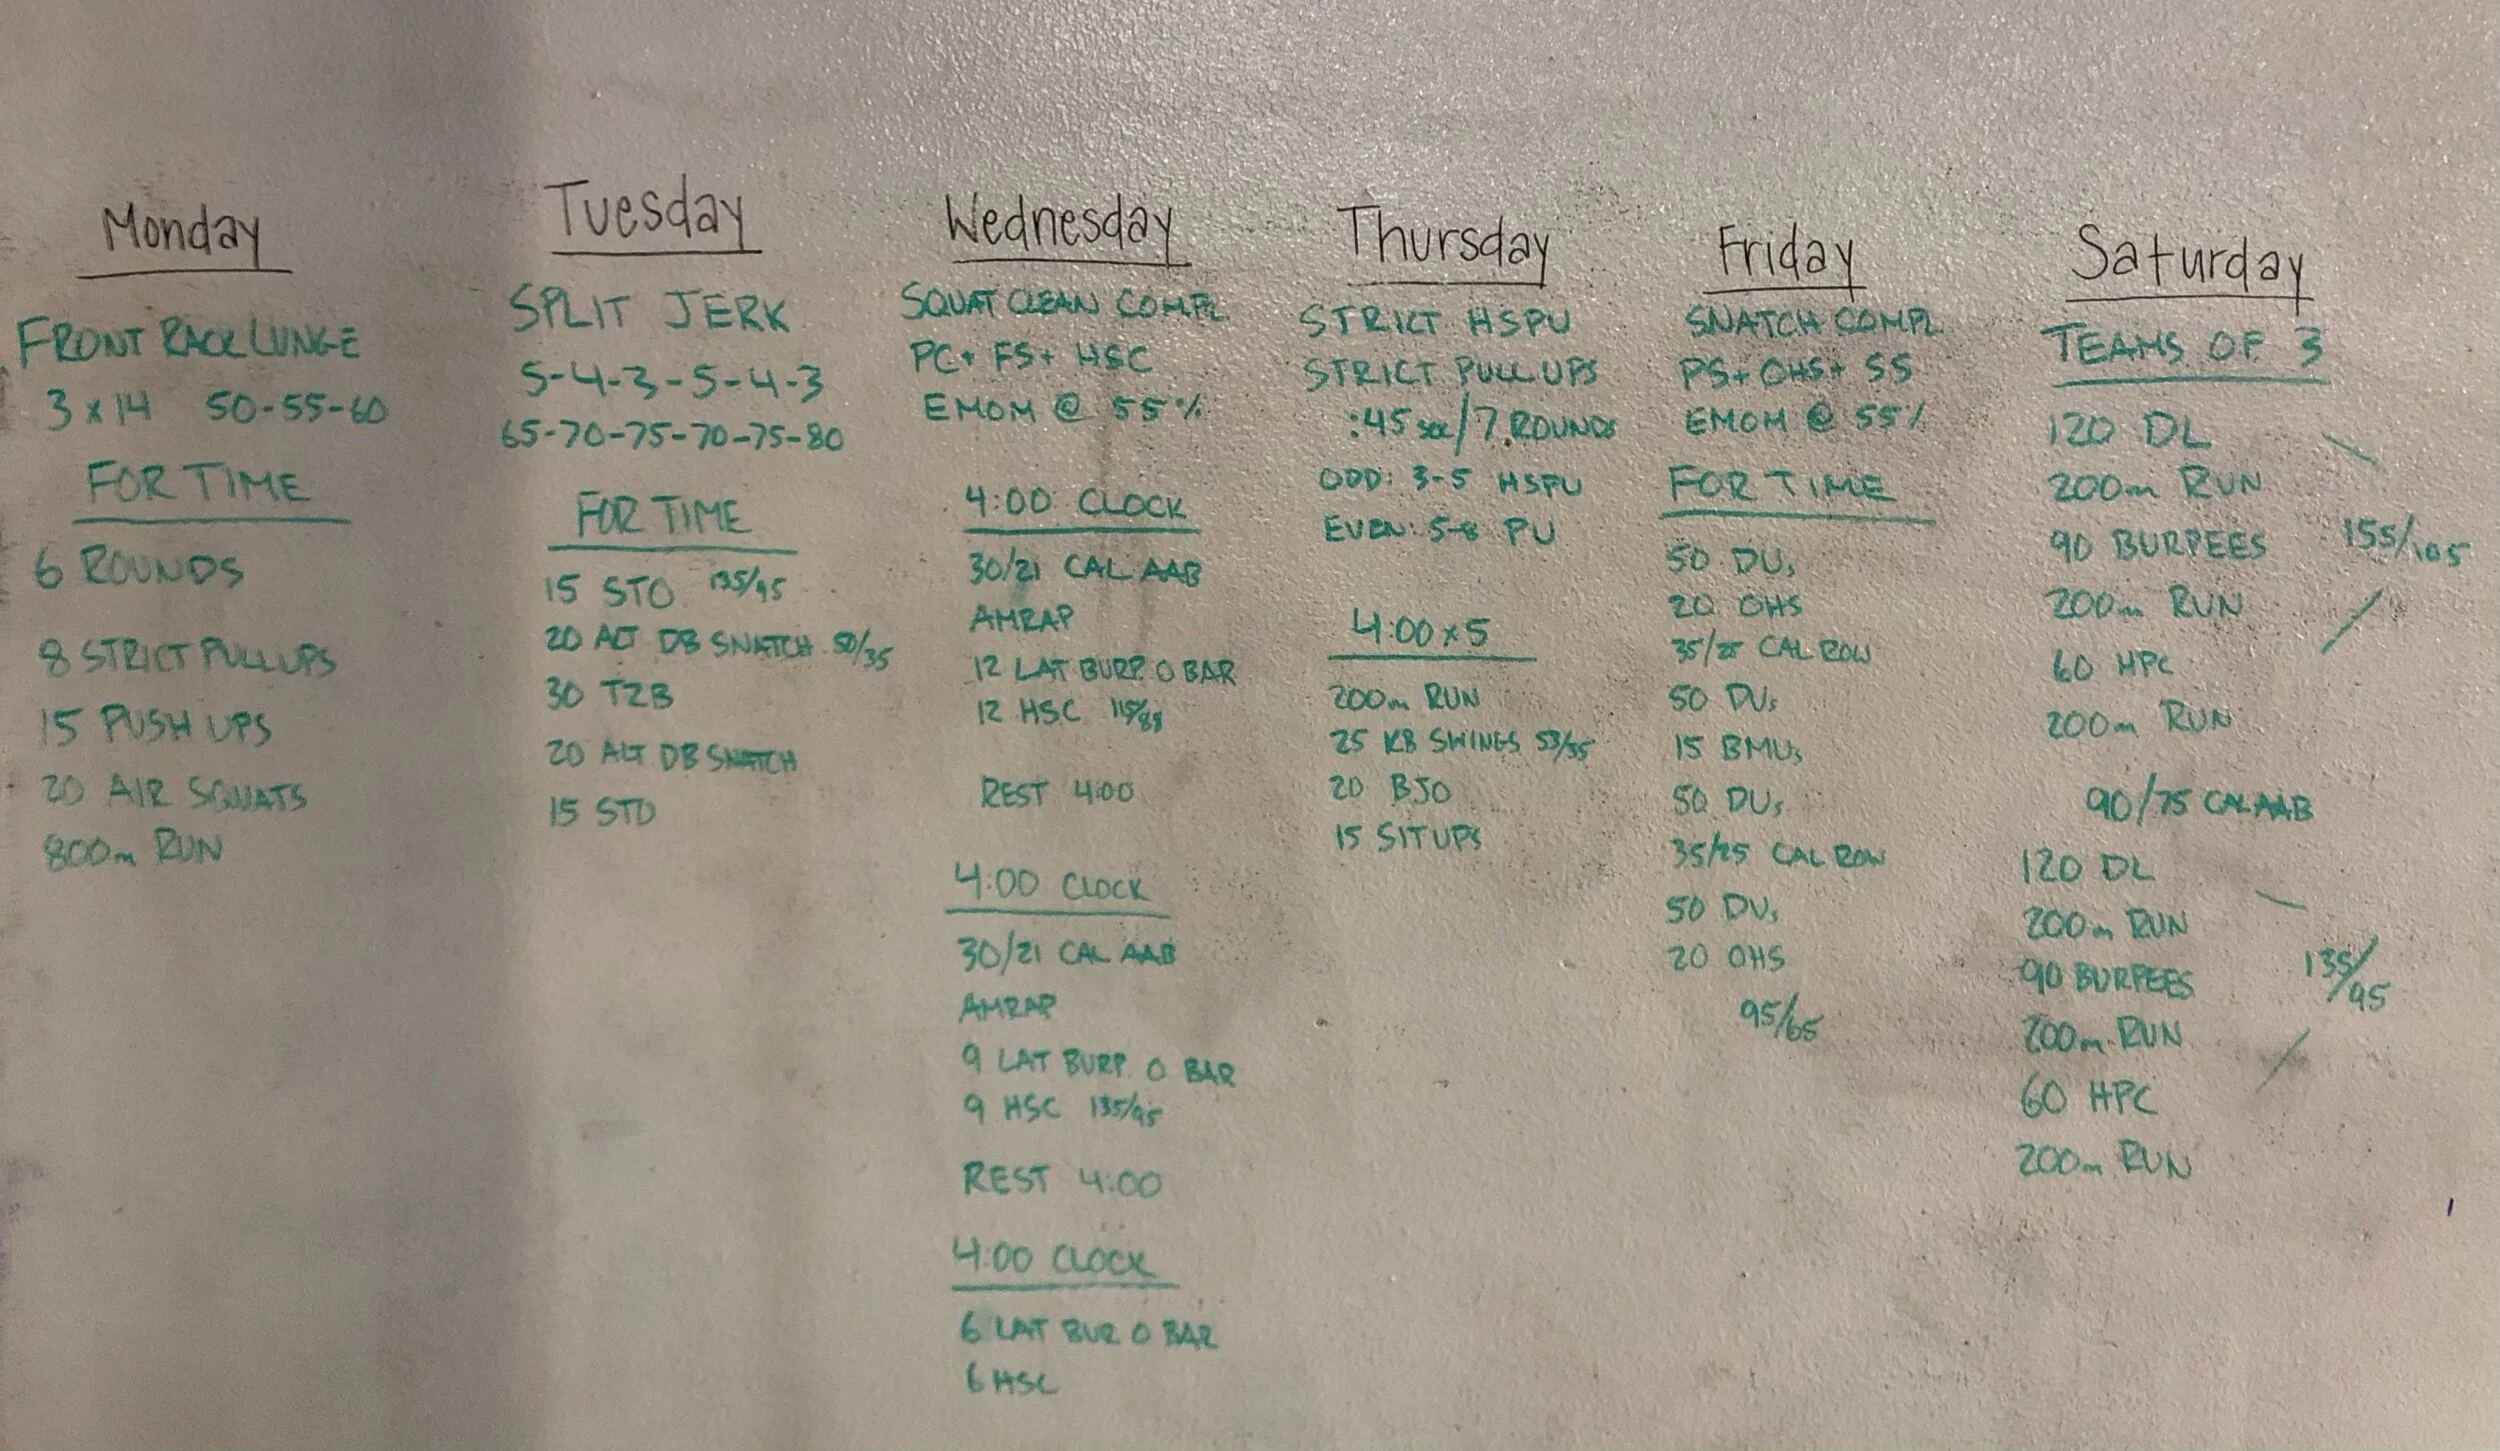 Monday
FRONT RACK LUNGE
3 x 14 50-55-60
FOR TIME
6 ROUNDS
8 STRICT PULLUPS
15 PUSH UPS
20 AIR SQUATS
800m RUN
Tuesday
SPLIT JERK
5-4-3-5-4-3
65-70-75-70-75-80
FOR TIME
15 STO 135/95
20 ALT DB SNATCH 50/35
30 T2B
20 ALT DB SNATCH
15 STO
Wednesday
SQUAT CLEAN COMPL
PC+ FS+ HSC
EMOM @ 55%
4:00 CLOCK
30/21 CAL AAB
AMRAP
12 LAT BURP. O BAR
12 HSC
REST 4:00
4:00 CLOCK
30/21 CAL AAB
AMRAP
9 LAT BURP. O BAR
9 HSC 135/95
REST 4:00
4:00 CLOCK
6 LAT BUR O BAR
6 HSC
Thursday
STRICT HSPU
STRICT PULLUPS
:45 sec/7 ROUNDS
ODD: 3-5 HSPU
EVEN: 5-8 PU
4:00 x 5
200m RUN
25 KB SWINGS 53/35
20 BJO
15 SITUPS
Friday
SNATCH COMPL
PS+ OHS+ SS
EMOM @ 55%
FOR TIME
50 DUs
20 OHS
35/25 CAL ROW
50 DUs
15 BMUs
50 DUs
35/25 CAL ROW
50 DUs
20 OHS
95/65
Saturday
TEAMS OF 3
120 DL
200m RUN
90 BURPEES 155/105
200m RUN
60 HPC
200m RUN
90/75 CAL AAB
120 DL
200m RUN
90 BURPEES 135/95
200m RUN
60 HPC
200m RUN